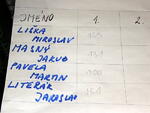 JMÉNO 1. 2.
LIŠKA
MIROSLAV
MAŠNÝ
JAKUB
PAVELA
MARTIN
LITERÁK
JAROSLAV